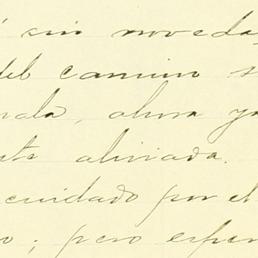 sin noveda
del camino s
mala, ahora ya
aliviada.
cuidado por el
o; pero esper